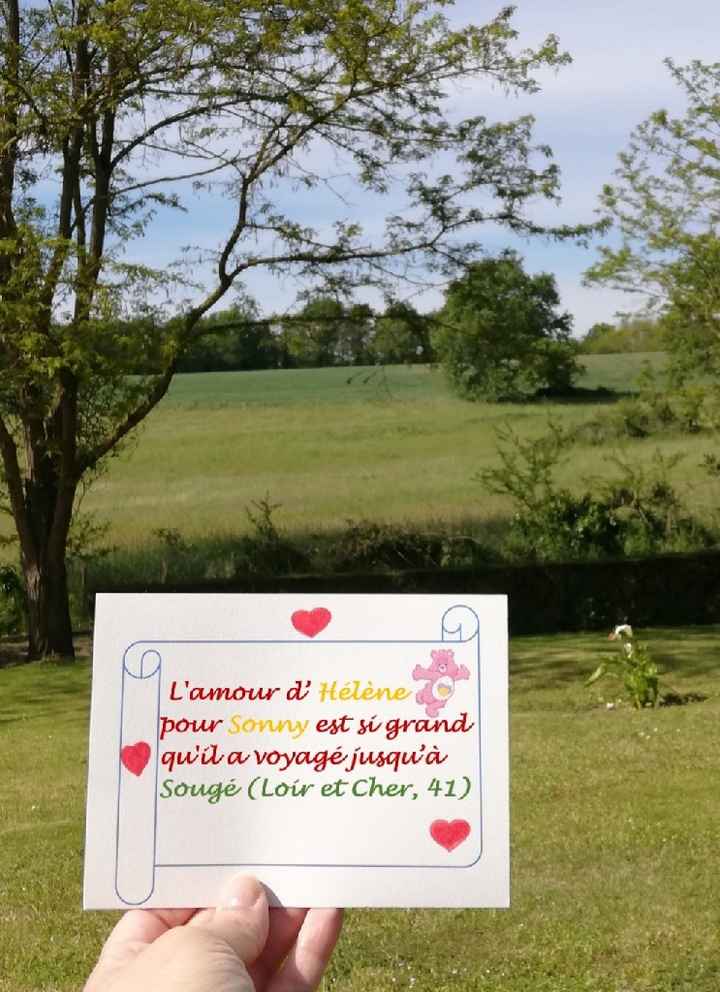 L'amour d’ Hélène
pour Sonny est si grand
qu'il a voyagé jusqu’à
Sougé (Loir et Cher, 41)